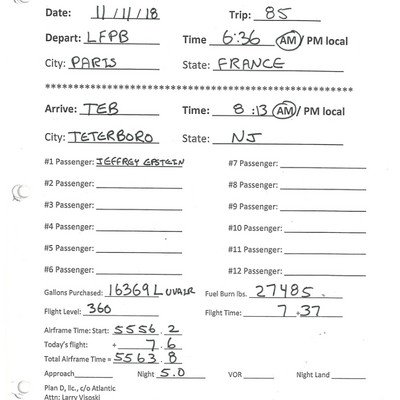 Date: 11/11/18 Trip: 85
Depart: LFPB Time 6:36 AM / PM local
City: PARIS State: FRANCE
************************************************************
Arrive: TEB Time: 8:13 AM / PM local
City: TETERBORO State: NJ
#1 Passenger: JEFFREY EPSTEIN #7 Passenger:
#2 Passenger: #8 Passenger:
#3 Passenger: #9 Passenger:
#4 Passenger: #10 Passenger:
#5 Passenger: #11 Passenger:
#6 Passenger: #12 Passenger:
Gallons Purchased: 16369 L UVAIR Fuel Burn lbs. 27485
Flight Level: 360 Flight Time: 7+37
Airframe Time: Start: 5556.2
Today's flight: + 7.6
Total Airframe Time = 5563.8
Approach Night 5.0 VOR Night Land
Plan D, llc., c/o Atlantic
Attn: Larry Visoski